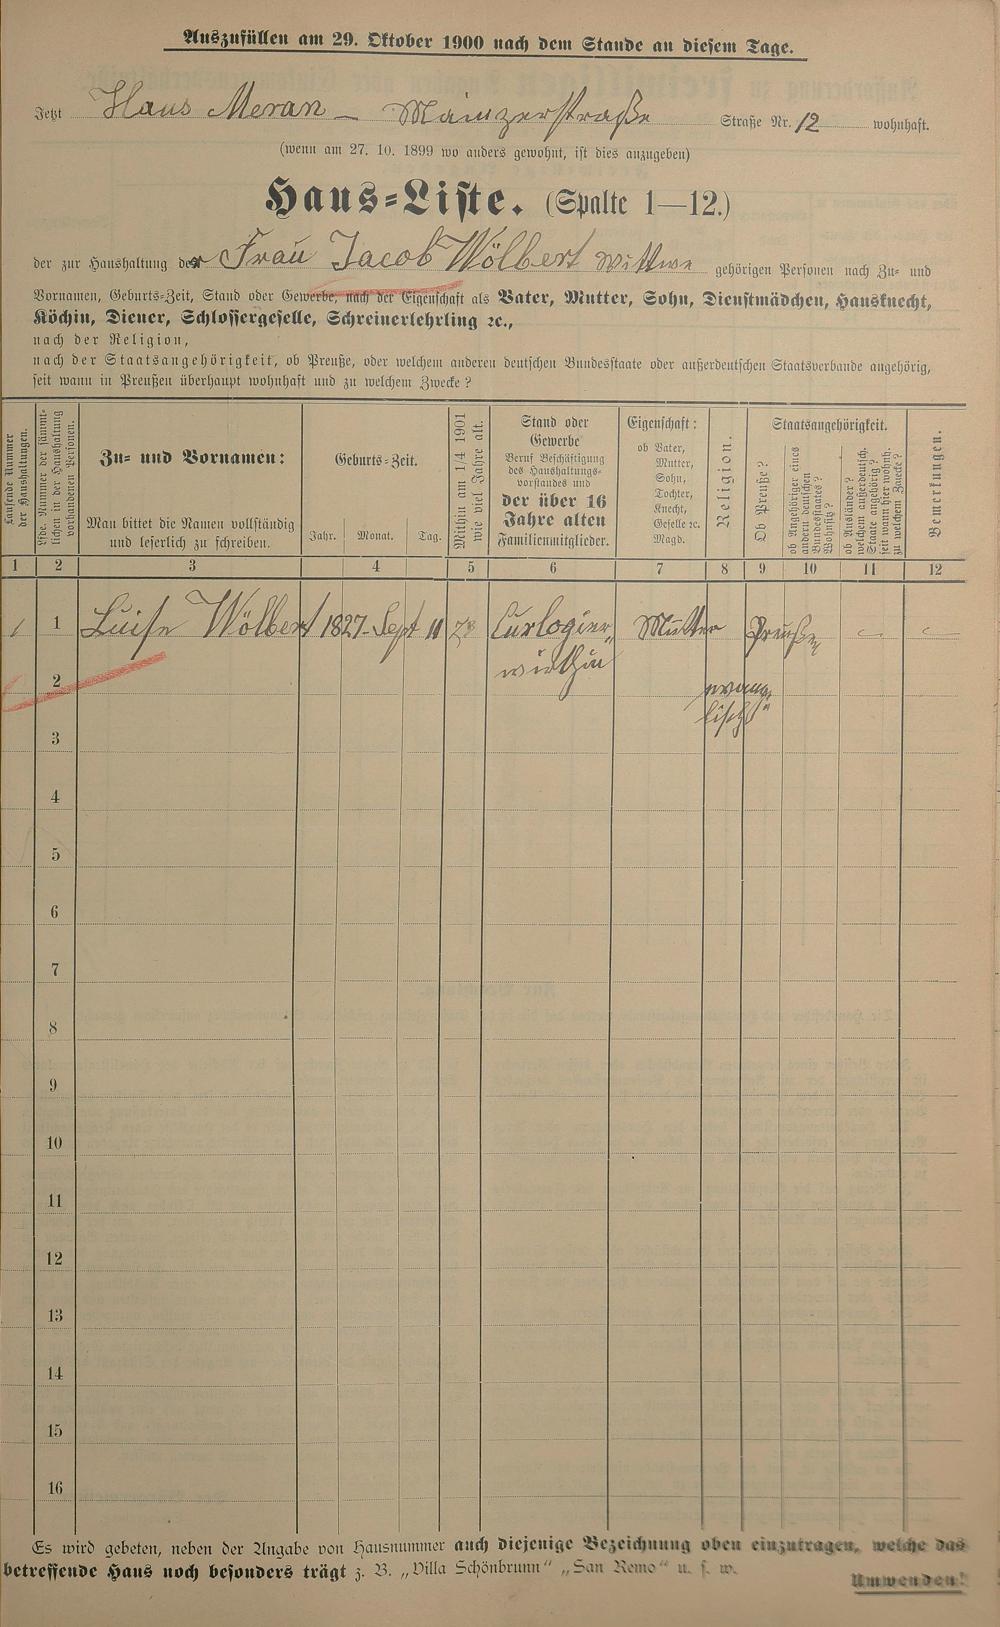 Auszufüllen am 29. Oktober 1900 nach dem Stande an diesem Tage.
Jetzt Haus Meran – Mainzerstraße Straße Nr. 12 wohnhaft.
(wenn am 27. 10. 1899 wo anders gewohnt, ist dies anzugeben)
Haus-Liste. (Spalte 1—12.)
der zur Haushaltung der Frau Jacob Wölbert Wittwe gehörigen Personen nach Zu- und
Vornamen, Geburts-Zeit, Stand oder Gewerbe, nach der Eigenschaft als Vater, Mutter, Sohn, Dienstmädchen, Hausknecht,
Köchin, Diener, Schlossergeselle, Schreinerlehrling ꝛc.,
nach der Religion,
nach der Staatsangehörigkeit, ob Preuße, oder welchem anderen deutschen Bundesstaate oder außerdeutschen Staatsverbande angehörig,
seit wann in Preußen überhaupt wohnhaft und zu welchem Zwecke?
Laufende Nummer
der Haushaltungen.
lfde. Nummer der sämmt-
lichen in der Haushaltung
vorhandenen Personen.
Zu- und Vornamen:
Man bittet die Namen vollständig
und leserlich zu schreiben.
Geburts-Zeit.
Jahr. Monat. Tag.
Mithin am 1/4 1901
wie viel Jahre alt.
Stand oder
Gewerbe
Beruf Beschäftigung
des Haushaltungs-
vorstandes und
der über 16
Jahre alten
Familienmitglieder.
Eigenschaft:
ob Vater,
Mutter,
Sohn,
Tochter,
Knecht,
Geselle ꝛc.
Magd.
Religion.
Staatsangehörigkeit.
Ob Preuße?
ob Angehöriger eines
andern deutschen
Bundesstaates?
Wohnsitz?
ob Ausländer?
welchem außerdeutsch.
Staate angehörig?
seit wann hier wohnh.
zu welchem Zwecke?
Bemerkungen.
1 2 3 4 5 6 7 8 9 10 11 12
1 1 Luise Wölbert 1827 Sept 11 73 Curlogier- Mutter Preußen – –
wirthin
2 evange-
lisch
3
4
5
6
7
8
9
10
11
12
13
14
15
16
Es wird gebeten, neben der Angabe von Hausnummer auch diejenige Bezeichnung oben einzutragen, welche das
betreffende Haus noch besonders trägt z. B. „Villa Schönbrunn“ „San Remo“ u. s. w.
Umwenden!